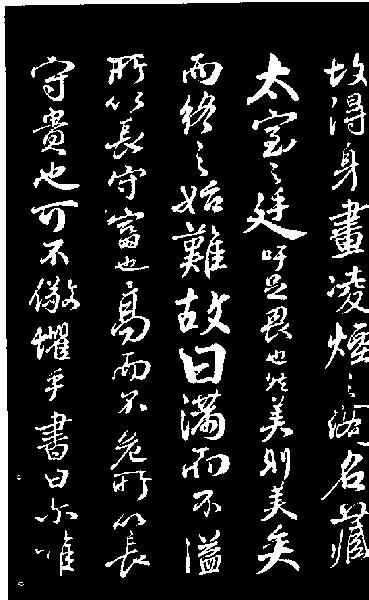 故得身畫凌煙之閣名藏
太室之廷吁足畏也然美則美矣
而終之始難故曰滿而不溢
所以長守富也高而不危所以長
守貴也可不儆懼乎書曰尔唯